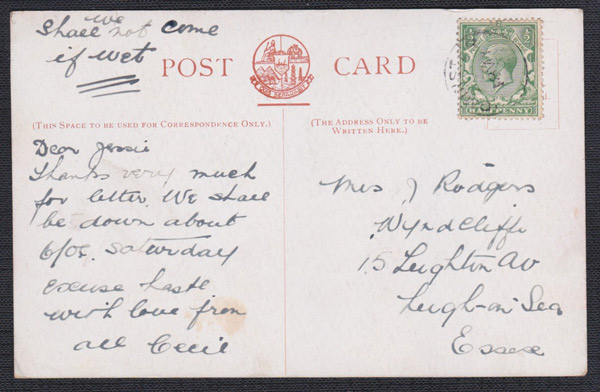 we
Shall not come
if wet
POST CARD
(THIS SPACE TO BE USED FOR CORRESPONDENCE ONLY.)
(THE ADDRESS ONLY TO BE
WRITTEN HERE.)
Dear Jessie
Thanks very much
for letter. We shall
be down about
6/0c. Saturday
Excuse haste
with love from
all Cecil
Mrs J Rodgers
Wyndcliffe
15 Leighton Av
Leigh-on Sea
Essex